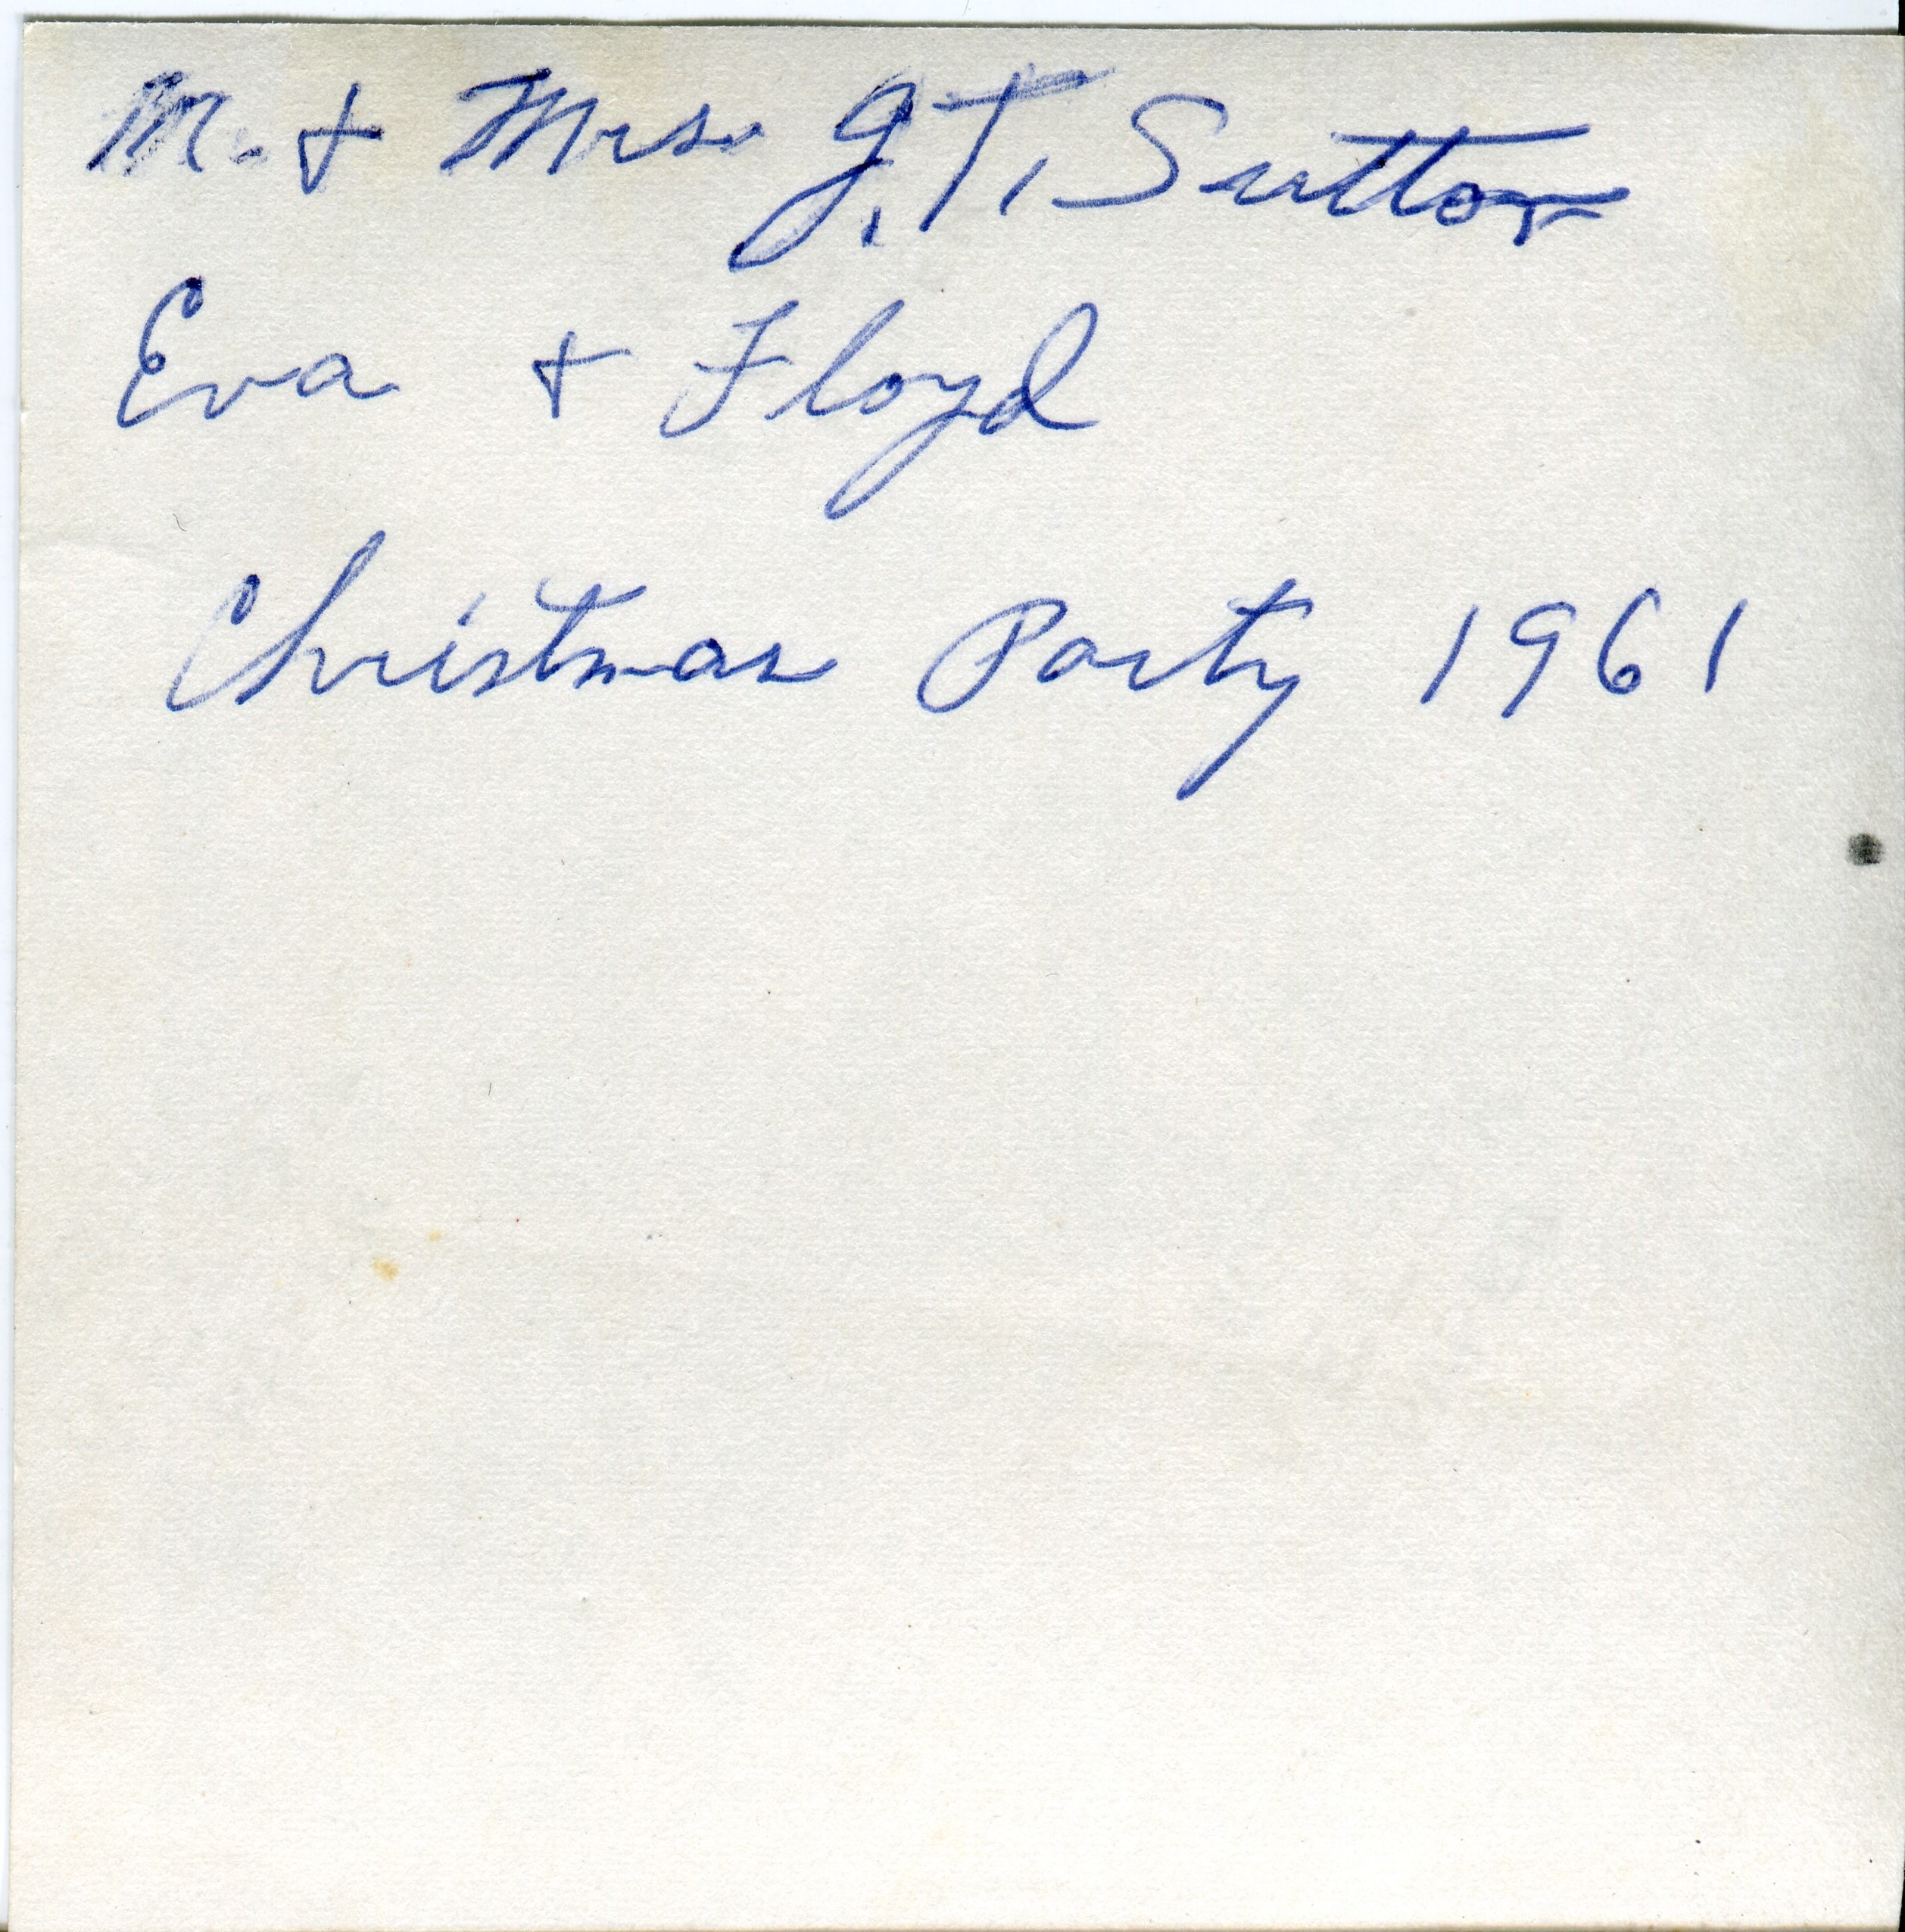 M. + Mrs. J. T. Sutton
Eva + Floyd
Christmas Party 1961